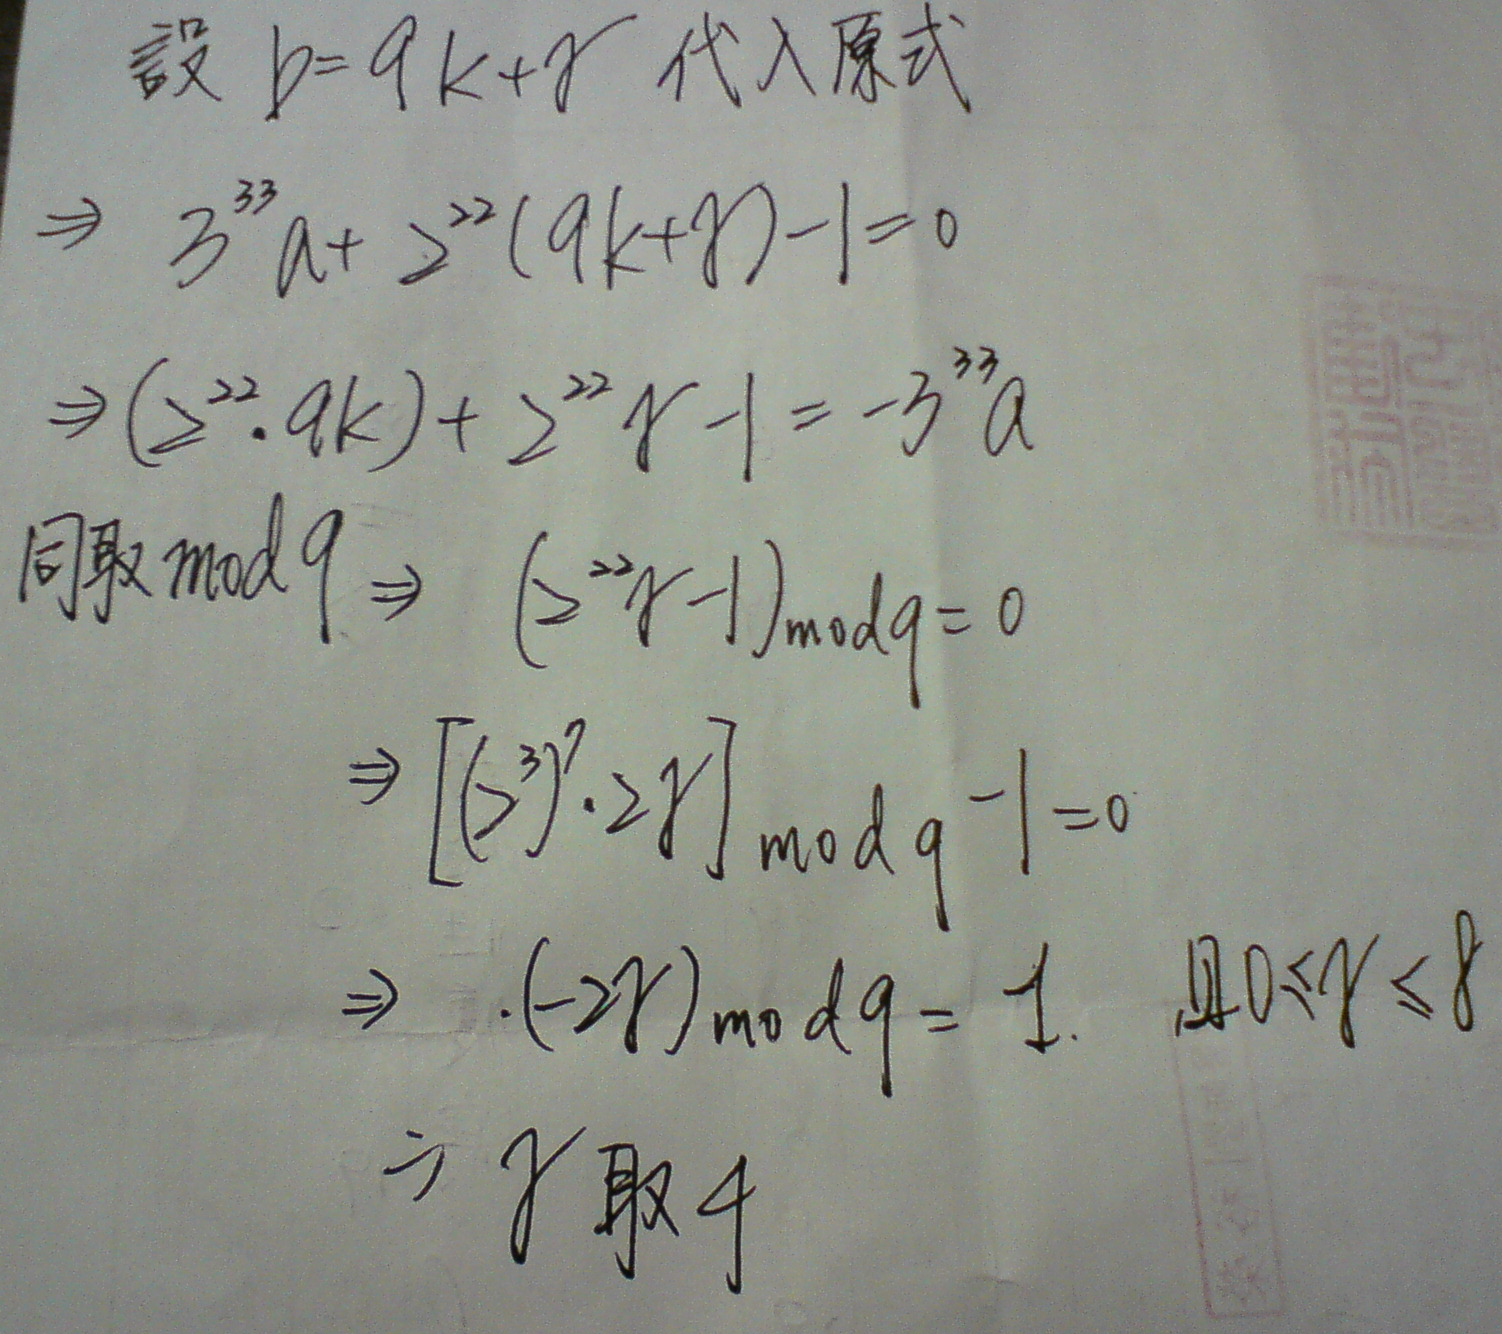 設 b=9k+r 代入原式
⇒ 3³³a+2²²(9k+r)-1=0
⇒(2²²·9k)+2²²r-1=-3³³a
同取mod9⇒ (2²²r-1)mod9=0
⇒[(2³)⁷·2r]mod9-1=0
⇒ (-2r)mod9=1. 且0≤r≤8
⇒ r取4